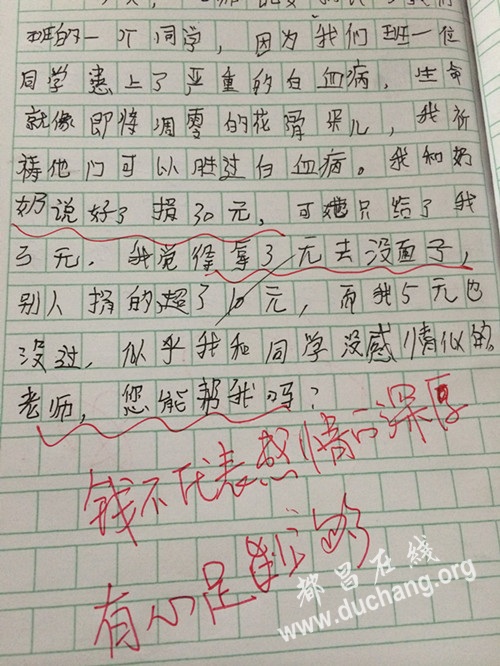 班的一个同学，因为我们班一位
同学患上了严重的白血病，生命
就像即将凋零的花骨朵儿，我祈
祷他们可以胜过白血病。我和奶
奶说好了捐30元，可她只给了我
5元．我觉得辱了无去没面子，
别人捐的超了10元，而我5元也
没过，似乎我和同学没感情似的
老师，您能帮我吗？
钱不代表感情的深厚
有心足够的
都昌在线
www.duchang.org